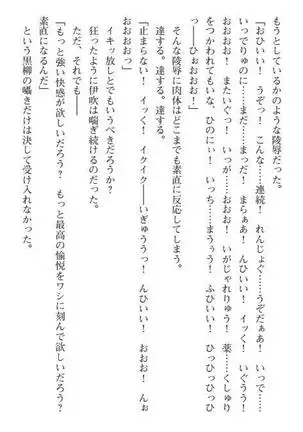 もうとしているかのような陵辱だった。
「おひいい！　うぞっ！　こんな……連続！　れんじょぐ……うぞだぁあ！　いっで……
いっでりゅのに……まだ……まっだ！　まらぁあ！　んひいい！　イッく！　いぐうう！
おおおお！　またいぐっ！　いっが……おおお！　いがじゃれりゅう！　薬……くしゅり
をつかわれてもいい、ひのにぃ！　いっち……まうぅう！　ふひいい！　ひっひっひっひ
っ──ひぉおおお！」
そんな陵辱に肉体はどこまでも素直に反応してしまう。
達する。達する。達する。
「止まらない！　イッく！　イクイク──いぎゅううっ！　んひいい！　おおお！　んぉ
おおおおっ」
イキッ放しとでもいうべきだろうか？
狂ったように伊吹は喘ぎ続けるのだった。
ただ、それでも──
「もっと強い快感が欲しいだろう？　もっと最高の愉悦をワシに刻んで欲しいだろう？
素直になるんだ」
という黒柳の囁きだけは決して受け入れなかった。